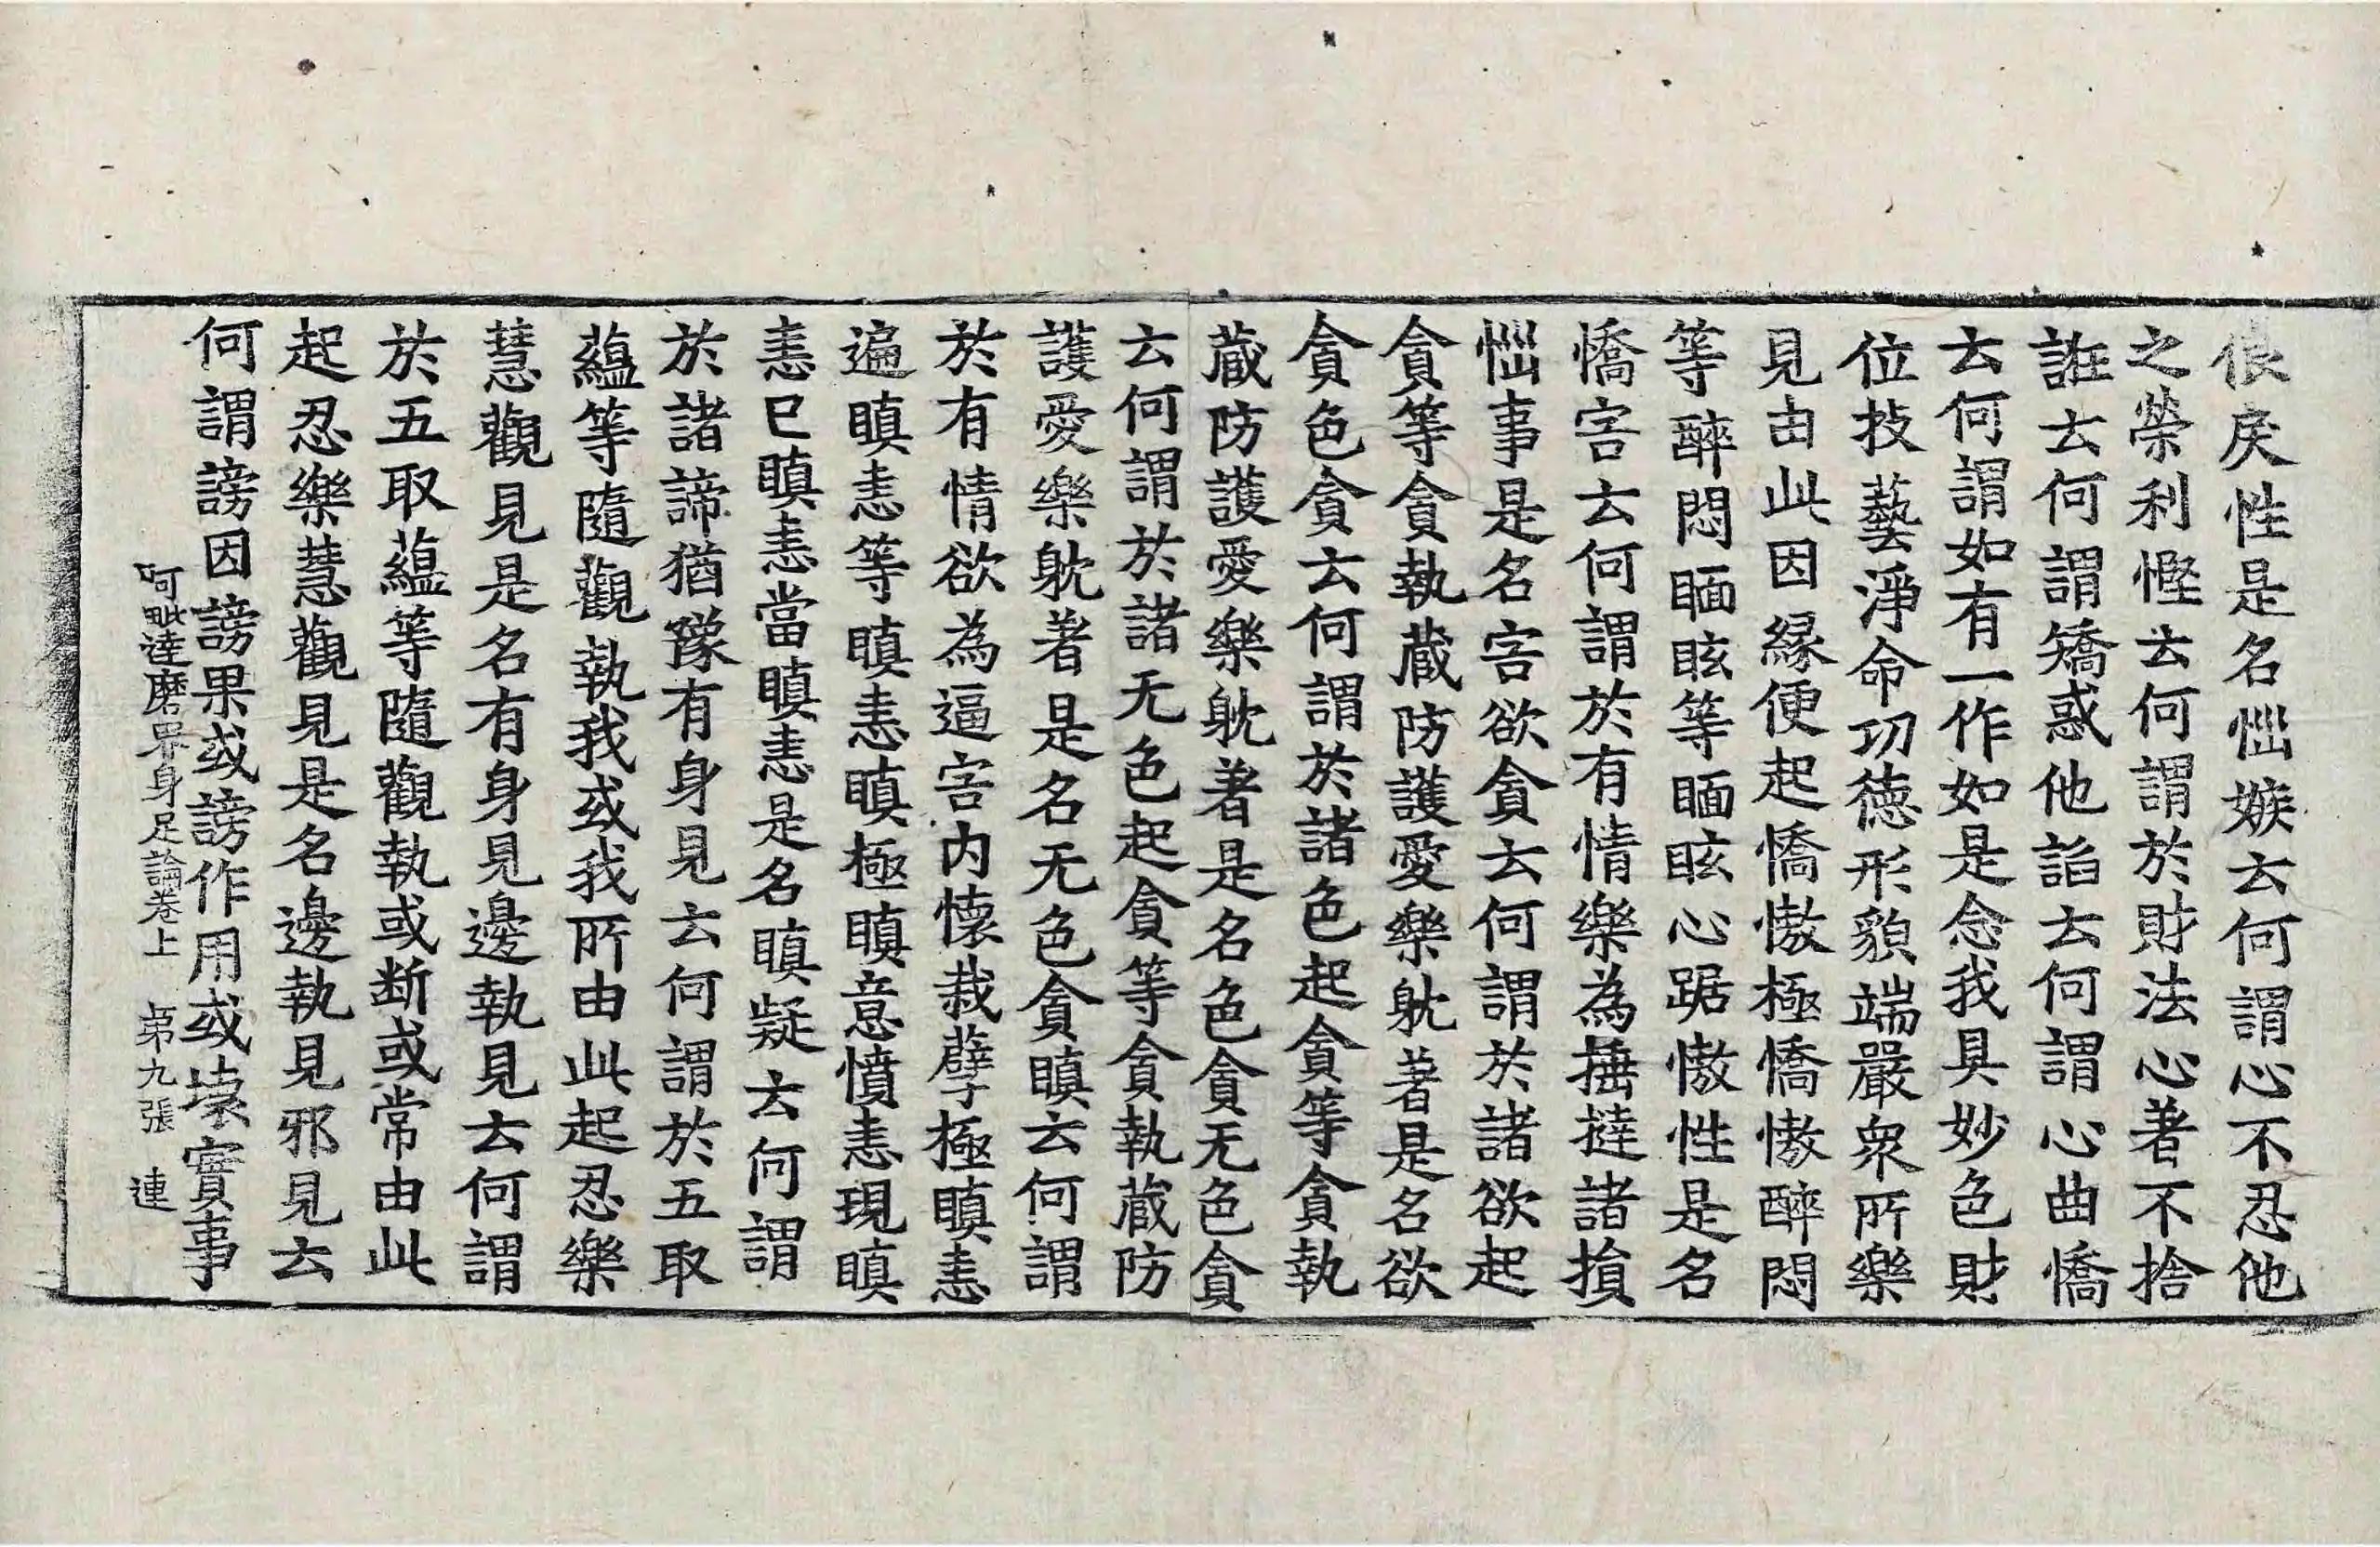 佷戾性是名㤼嫉云何謂心不忍他
之榮利慳云何謂於財法心著不捨
誑云何謂矯惑他諂云何謂心曲憍
云何謂如有一作如是念我具妙色財
位技藝淨命㓛德形貌端嚴衆所樂
見由此因緣便起憍慠極憍慠醉悶
等醉悶眲眩等眲眩心踞慠性是名
憍害云何謂於有情樂為捶撻諸損
惱事是名害欲貪云何謂於諸欲起
貪等貪執藏防護愛樂躭著是名欲
貪色貪云何謂於諸色起貪等貪執
藏防護愛樂躭著是名色貪无色貪
云何謂於諸无色起貪等貪執藏防
護愛樂躭著是名无色貪瞋云何謂
於有情欲為逼害內懷栽孽極瞋恚
遍瞋恚等瞋恚瞋極瞋意憤恚現瞋
恚已瞋恚當瞋恚是名瞋疑云何謂
於諸諦猶豫有身見云何謂於五取
蘊等隨觀執我或我所由此起忍樂
慧觀見是名有身見邊執見云何謂
於五取蘊等隨觀執或断或常由此
起忍樂慧觀見是名邊執見邪見云
何謂謗因謗果或謗作用或壞實事
阿毗達磨界身足論卷上 第九張 連